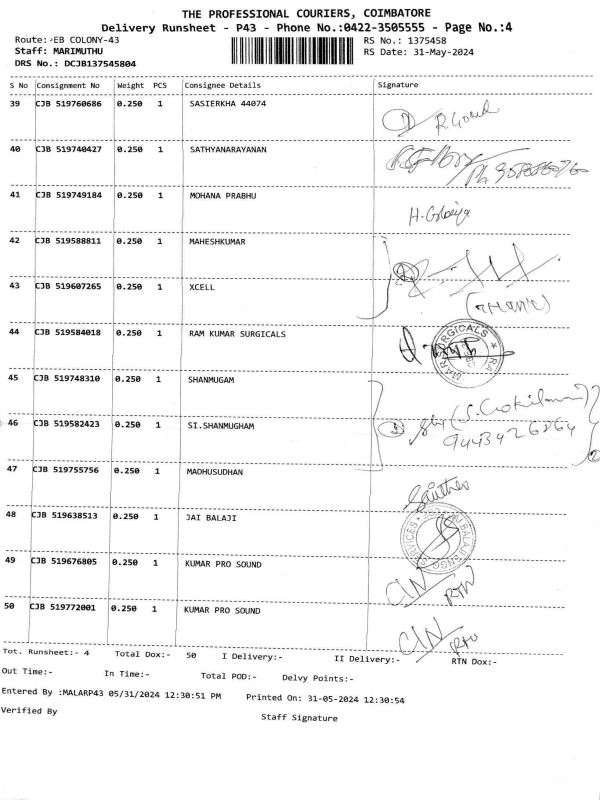 THE PROFESSIONAL COURIERS, COIMBATORE
Delivery Runsheet - P43 - Phone No.:0422-3505555 - Page No.:4
Route: EB COLONY-43 RS No.: 1375458
Staff: MARIMUTHU RS Date: 31-May-2024
DRS No.: DCJB137545804
S No Consignment No Weight PCS Consignee Details Signature
39 CJB 519760686 0.250 1 SASIERKHA 44074
40 CJB 519740427 0.250 1 SATHYANARAYANAN
41 CJB 519749184 0.250 1 MOHANA PRABHU
42 CJB 519588811 0.250 1 MAHESHKUMAR
43 CJB 519607265 0.250 1 XCELL
44 CJB 519584018 0.250 1 RAM KUMAR SURGICALS
45 CJB 519748310 0.250 1 SHANMUGAM
46 CJB 519582423 0.250 1 SI.SHANMUGHAM
47 CJB 519755756 0.250 1 MADHUSUDHAN
48 CJB 519638513 0.250 1 JAI BALAJI
49 CJB 519676805 0.250 1 KUMAR PRO SOUND
50 CJB 519772001 0.250 1 KUMAR PRO SOUND
Tot. Runsheet:- 4 Total Dox:- 50 I Delivery:- II Delivery:- RTN Dox:-
Out Time:- In Time:- Total POD:- Delvy Points:-
Entered By :MALARP43 05/31/2024 12:30:51 PM Printed On: 31-05-2024 12:30:54
Verified By Staff Signature